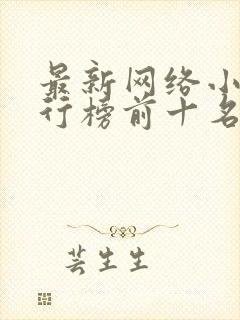 最新网络小
行榜前十名
芸生生